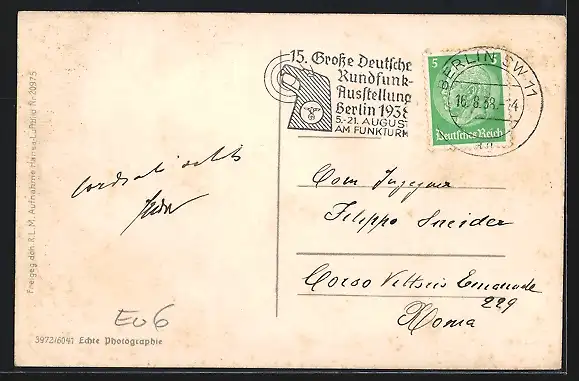 15. Große Deutsche
Rundfunk-
Ausstellung
Berlin 1938
5.-21. AUGUST
AM FUNKTURM
5
BERLIN SW 11
16.8.38.-14
Deutsches Reich
Freigeg. dch. R.L.M. Aufnahme Hansa-Luftbild Nr. 20975
Filippo Sneider
Corso Vittorio Emanuele
229
Roma
EU6
3972/6041 Echte Photographie